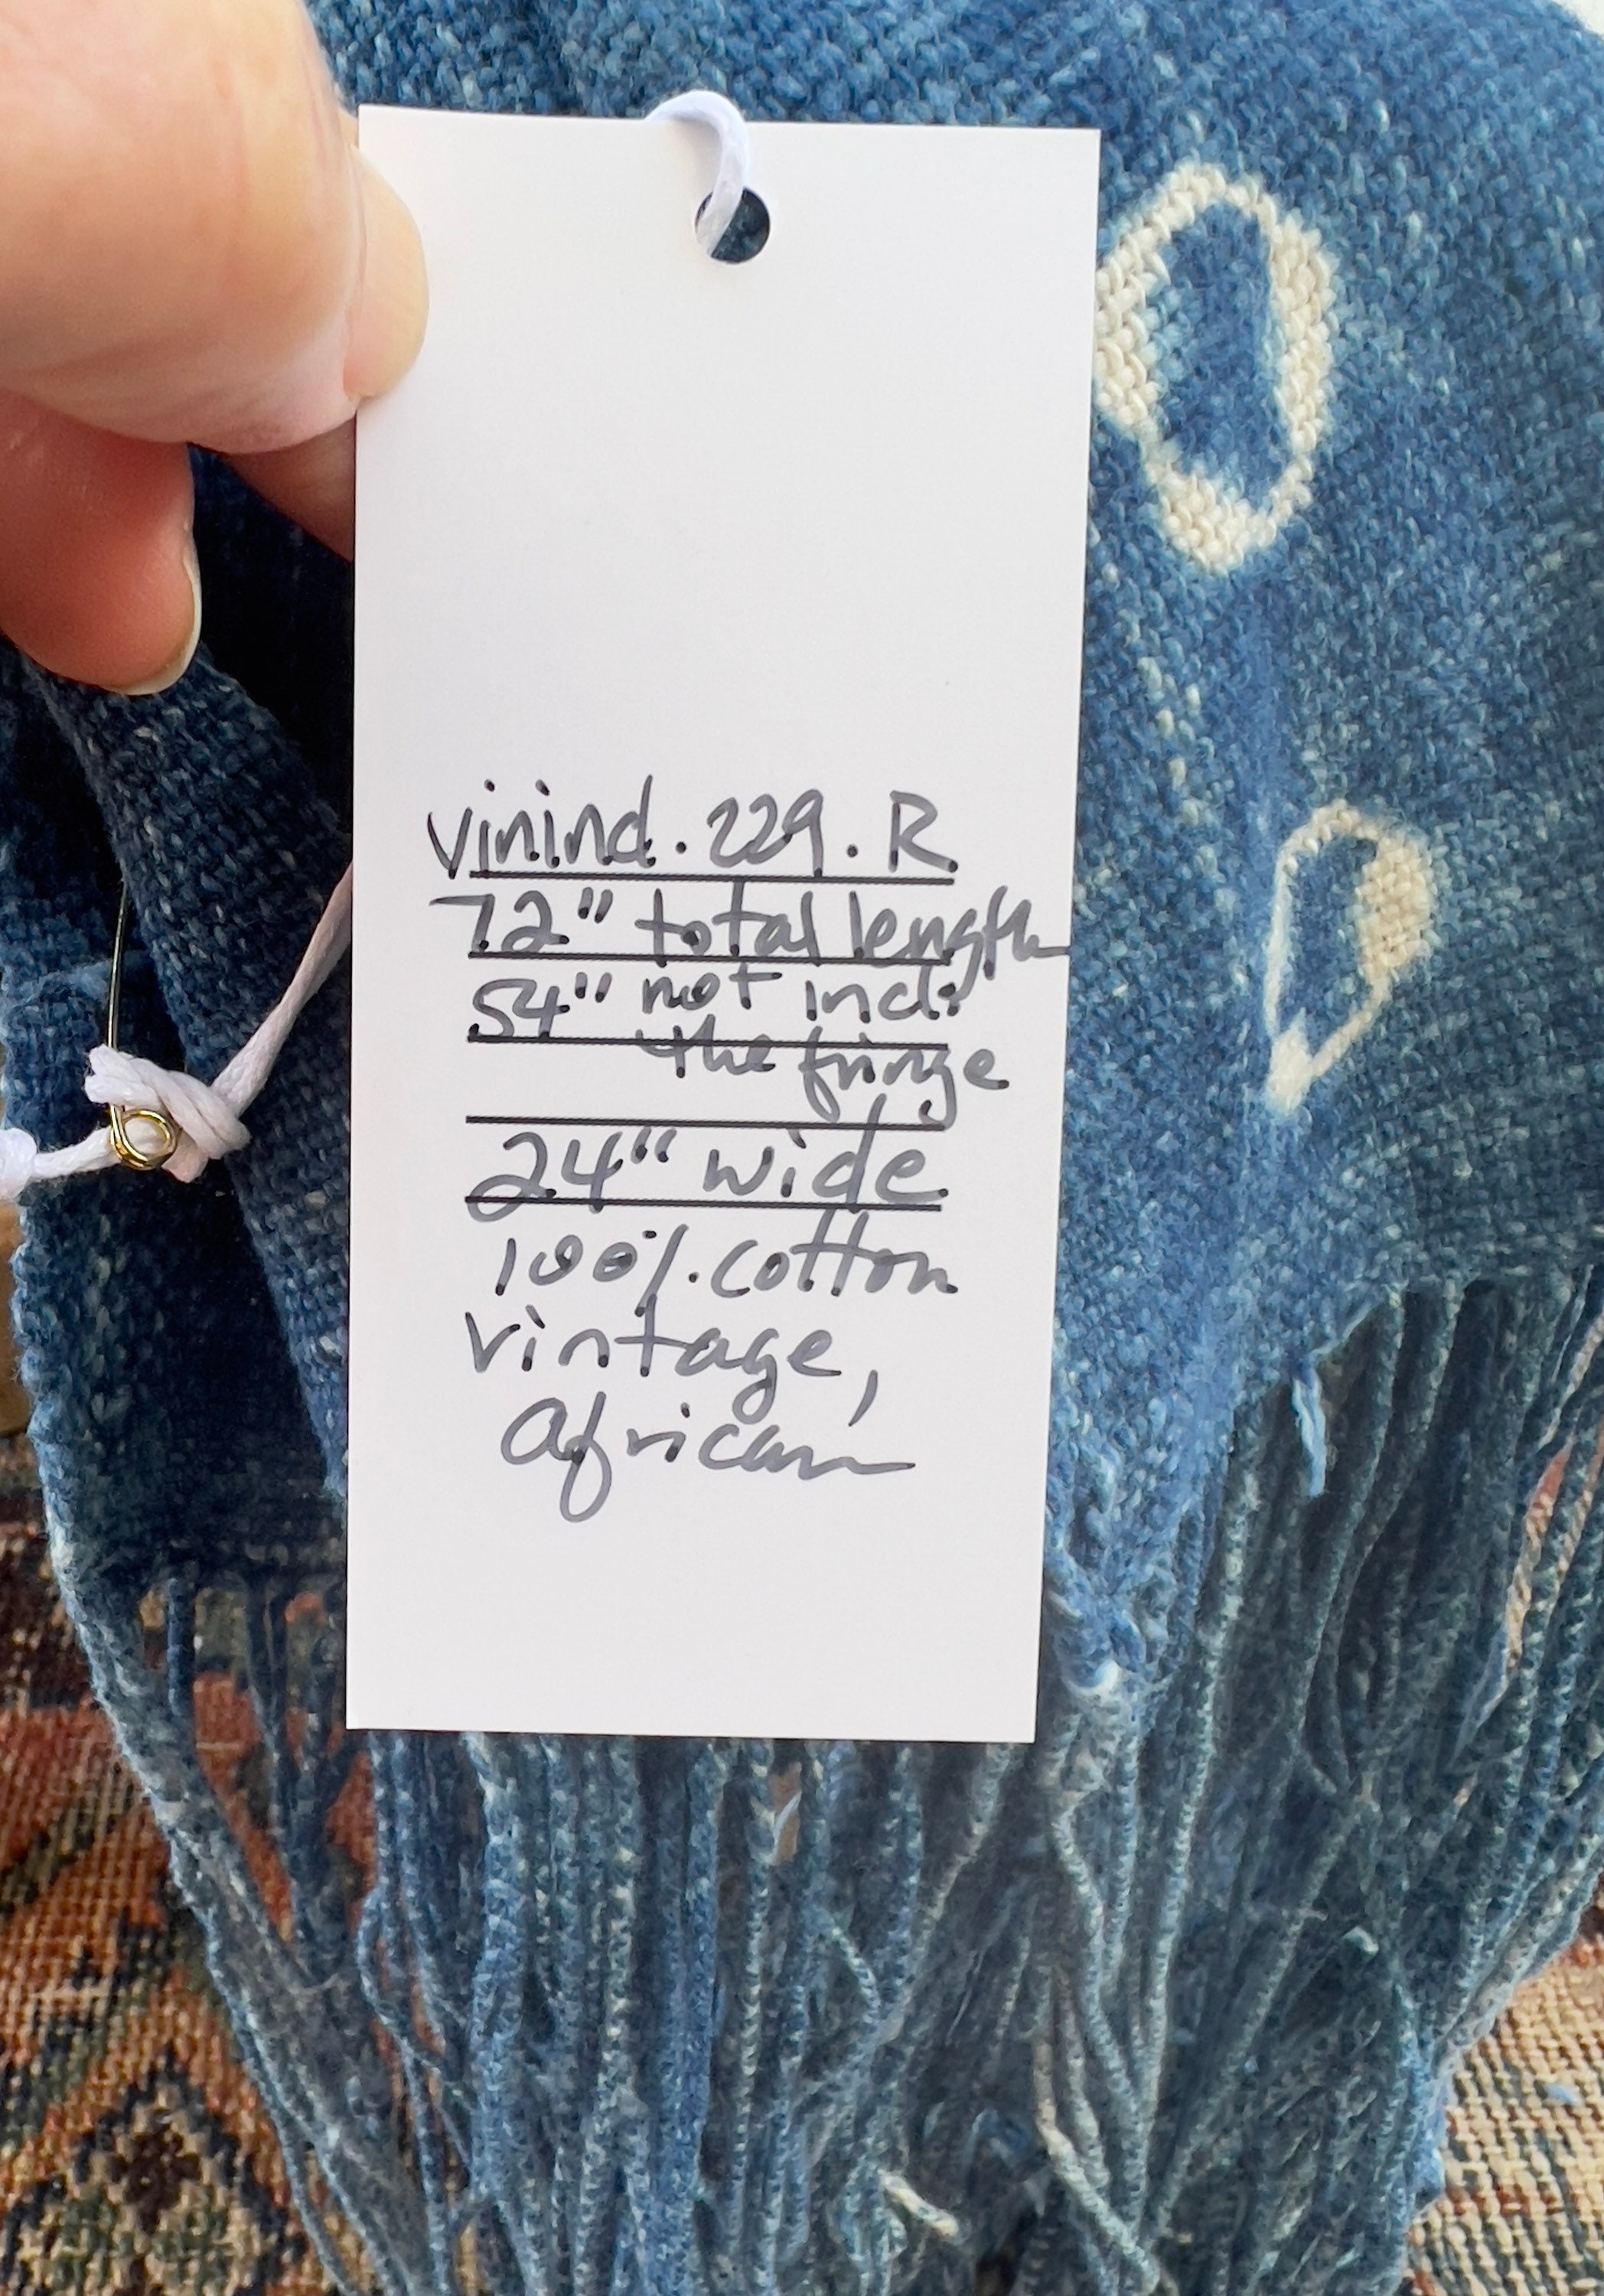 vinind.229.R
72" total length
54" not incl.
the fringe
24" wide
100%.cotton
vintage,
African